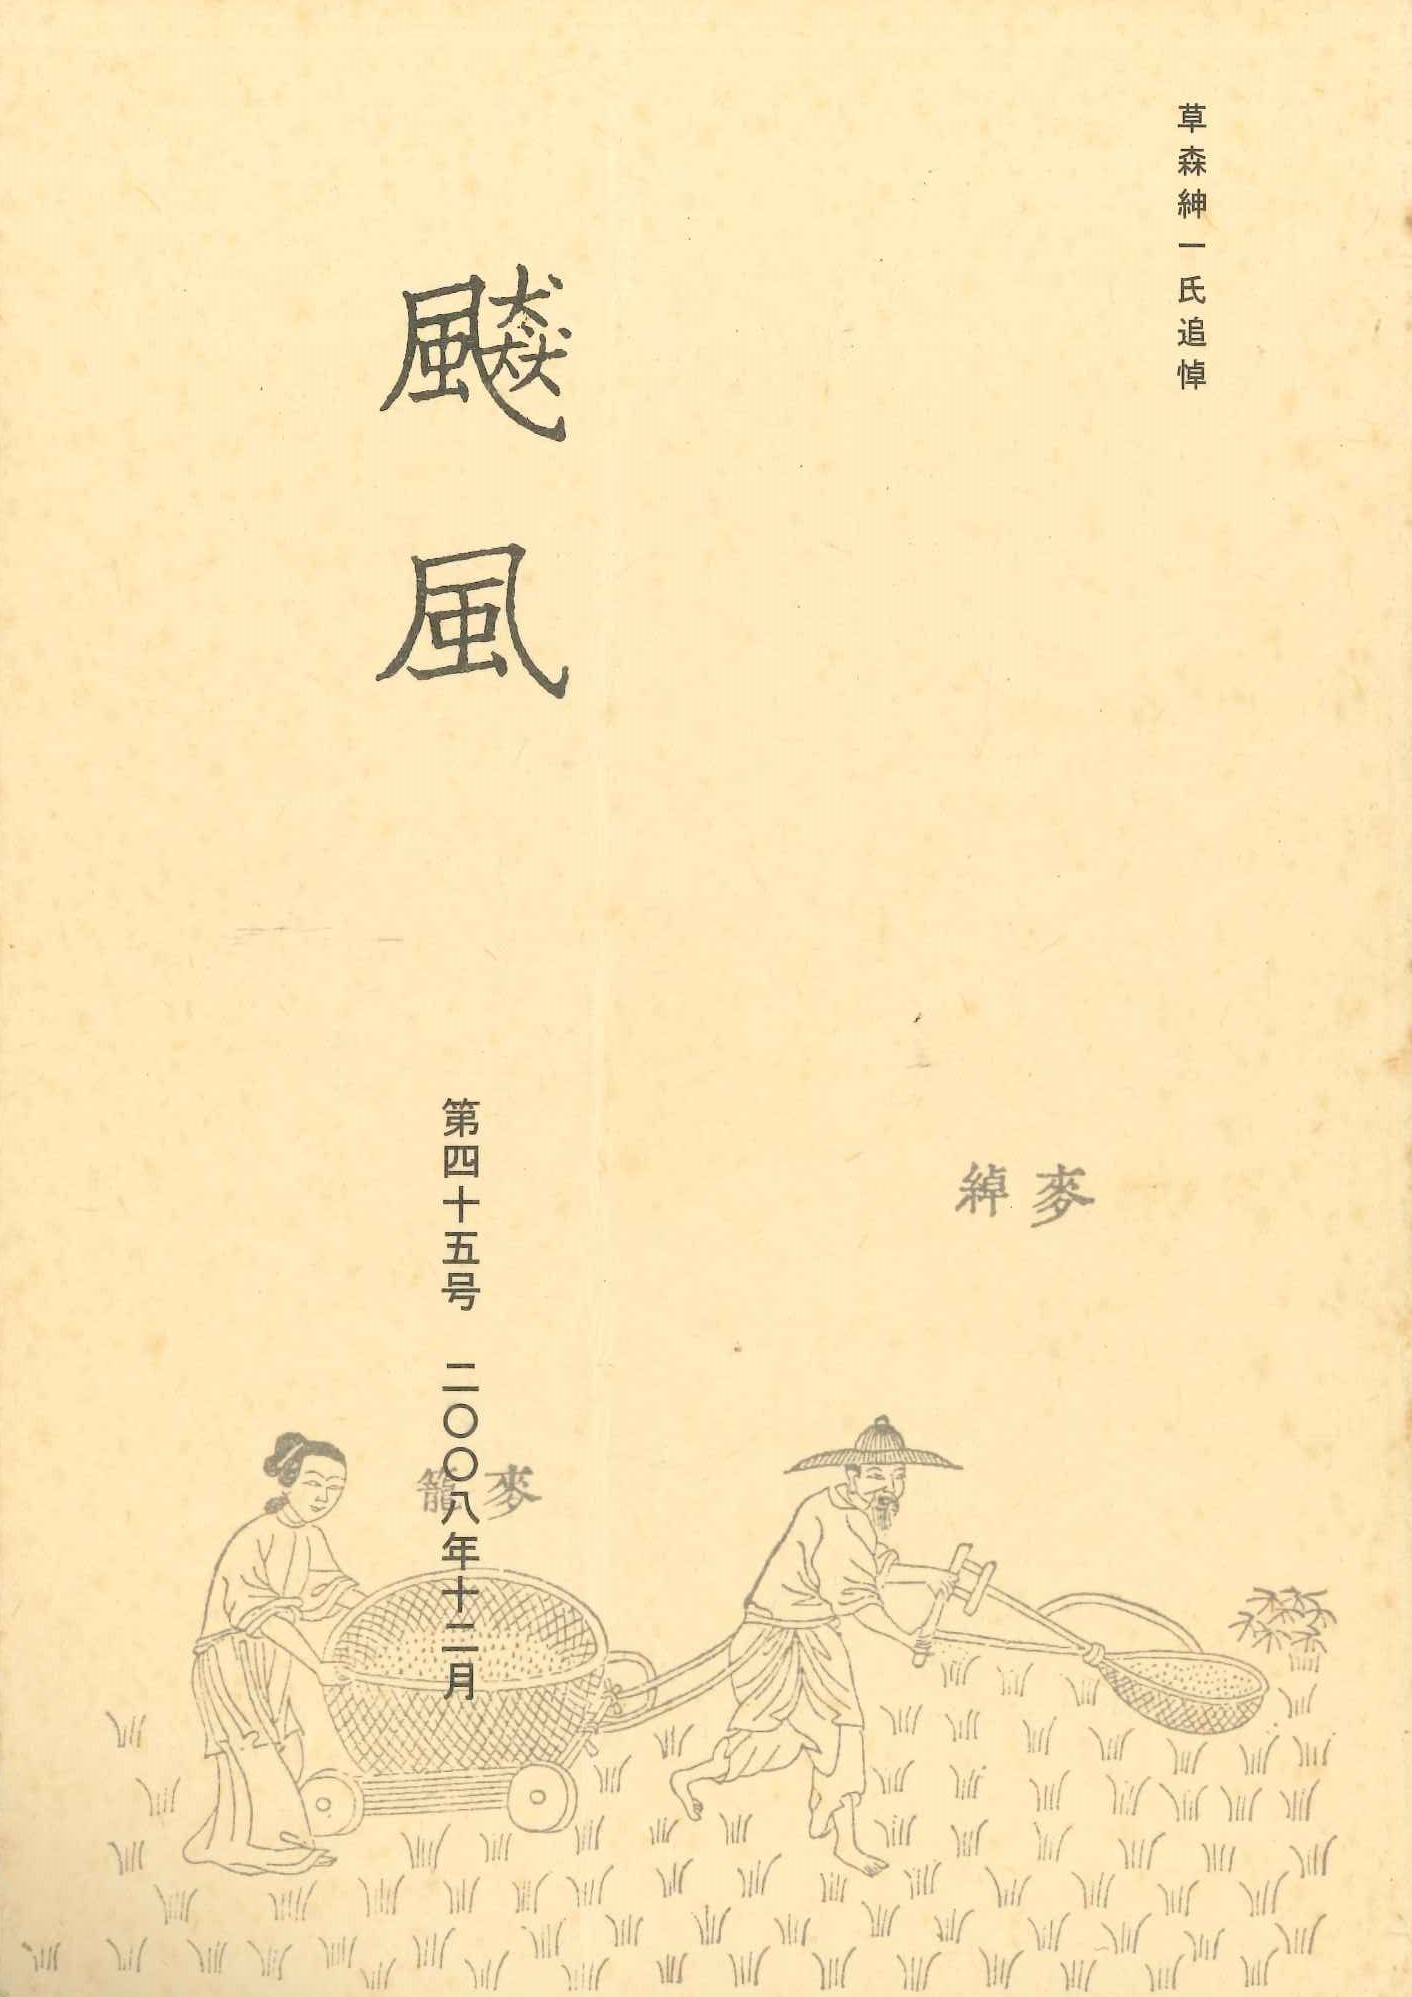 草森紳一氏追悼
飇風
第四十五号　二〇〇八年十二月
麥綽
麥籠